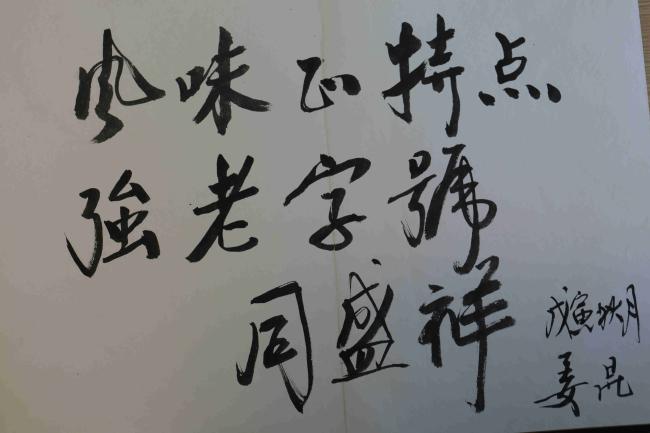 风味正特点
強老字號
同盛祥
戊寅秋月
姜昆